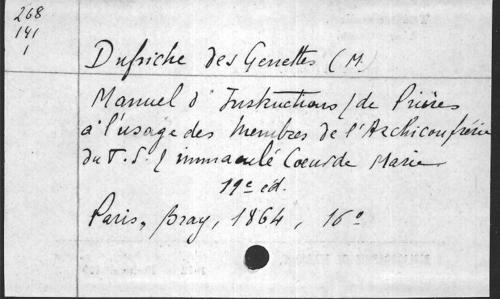 268
141
1
Dufriche des Genettes (M.
Manuel d'Instructions / de Prières
à l'usage des Membres de l'Archiconfrérie
du T. S. / immaculé Coeur de Marie
19e éd.
Paris, Bray, 1864, 16o